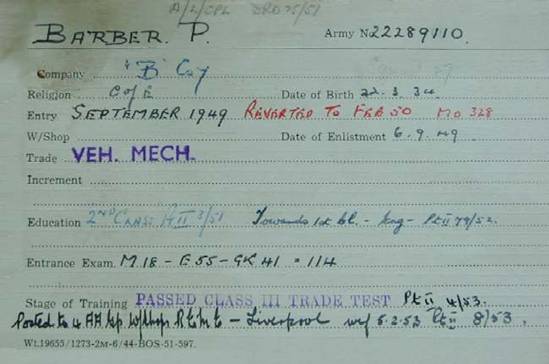 A/L/CPL DRO 75/51
BARBER. P. Army No 22289110.
Company "B" Coy
Religion C of E Date of Birth 22. 3. 34.
Entry SEPTEMBER 1949 REVERTED TO FEB 50 Mo 328
W/Shop Date of Enlistment 6. 9. 49.
Trade VEH. MECH.
Increment
Education 2ND CLASS PT II 3/51 Towards 1st cl. - Eng - Pt II 79/52.
Entrance Exam. M 18 - E 55 - GK 41 = 114
Stage of Training PASSED CLASS III TRADE TEST Pt II 4/53.
Posted to 4 AA Gp W/shop R E M E - Liverpool wef 5.2.53 Pt II 8/53.
Wt.19655/1273-2M-6/44-BOS-51-597.